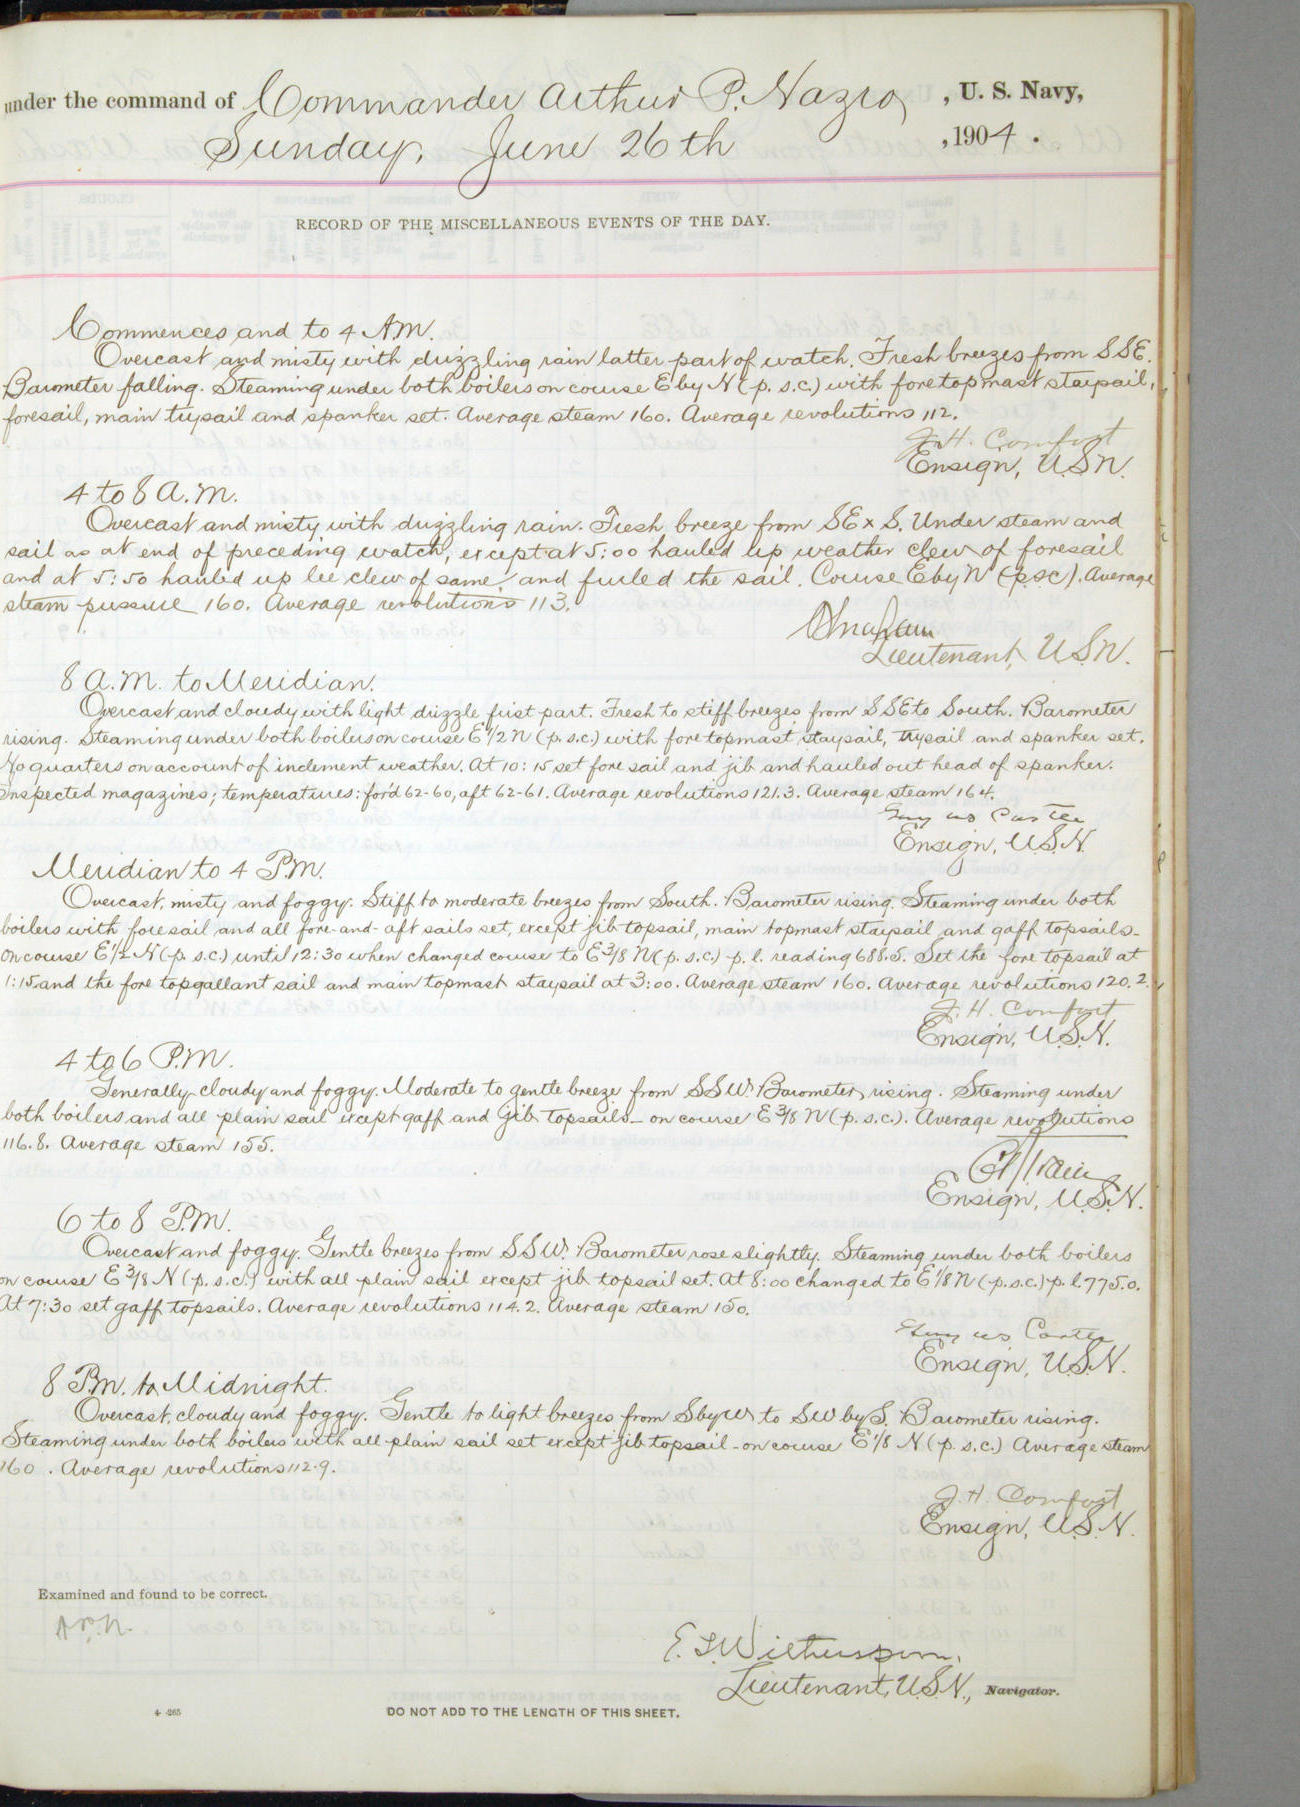 under the command of Commander Arthur P. Nazro, , U. S. Navy,
Sunday, June 26th , 1904.
RECORD OF THE MISCELLANEOUS EVENTS OF THE DAY.
Commences and to 4 A.M.
Overcast and misty with drizzling rain latter part of watch. Fresh breezes from SSE.
Barometer falling. Steaming under both boilers on course E by N (p. s.c.) with foretopmast staysail,
foresail, main trysail and spanker set. Average steam 160. Average revolutions 112.
J. H. Comfort
Ensign, U.S.N.
4 to 8 A.M.
Overcast and misty with drizzling rain. Fresh breeze from SE x S. Under steam and
sail as at end of preceding watch, except at 5:00 hauled up weather clew of foresail
and at 5:50 hauled up lee clew of same and furled the sail. Course E by N (p.s.c). Average
steam pressure 160. Average revolutions 113.
Lieutenant, U.S.N.
8 A.M. to Meridian.
Overcast and cloudy with light drizzle first part. Fresh to stiff breezes from SSE to South. Barometer
rising. Steaming under both boilers on course E 1/2 N (p. s.c.) with fore topmast staysail, trysail and spanker set.
No quarters on account of inclement weather. At 10:15 set fore sail and jib and hauled out head of spanker.
Inspected magazines; temperatures: for'd 62-60, aft 62-61. Average revolutions 121.3. Average steam 164.
Guy W S Castle
Ensign, U.S.N.
Meridian to 4 P.M.
Overcast, misty and foggy. Stiff to moderate breezes from South. Barometer rising. Steaming under both
boilers with foresail and all fore-and-aft sails set, except jib topsail, main topmast staysail and gaff topsails-
on course E 1/2 N (p. s.c.) until 12:30 when changed course to E 3/8 N (p. s.c.) p. l. reading 688.5. Set the fore topsail at
1:15 and the fore topgallant sail and main topmast staysail at 3:00. Average steam 160. Average revolutions 120.2.
J. H. Comfort
Ensign, U.S.N.
4 to 6 P.M.
Generally cloudy and foggy. Moderate to gentle breeze from SSW. Barometer rising. Steaming under
both boilers and all plain sail except gaff and jib topsails- on course E 3/8 N (p. s.c.). Average revolutions
116.8. Average steam 155.
Ensign, U.S.N.
6 to 8 P.M.
Overcast and foggy. Gentle breezes from SSW. Barometer rose slightly. Steaming under both boilers
on course E 3/8 N (p. s.c.) with all plain sail except jib topsail set. At 8:00 changed to E 1/8 N (p.s.c.) p. l. 775.0.
At 7:30 set gaff topsails. Average revolutions 114.2. Average steam 150.
Guy W S Castle
Ensign, U.S.N.
8 P.M. to Midnight.
Overcast, cloudy and foggy. Gentle to light breezes from S by W to SW by S. Barometer rising.
Steaming under both boilers with all plain sail set except jib topsail - on course E 1/8 N (p. s.c.) Average steam
160. Average revolutions 112.9.
J. H. Comfort
Ensign, U.S.N.
Examined and found to be correct.
A.P.N.
E. L. Witherspoon.
Lieutenant, U.S.N., Navigator.
4-265
DO NOT ADD TO THE LENGTH OF THIS SHEET.